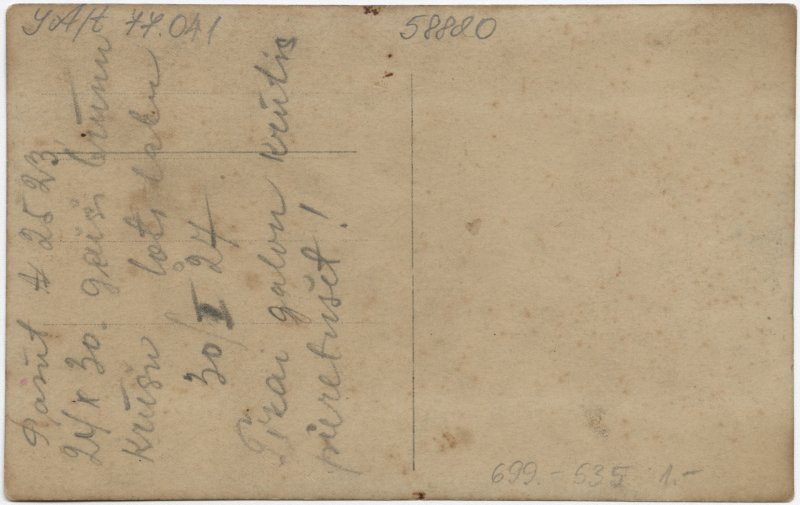 77.041
58880
Pasūt # 2523
24 x 30. gaiši brūnu
krūšu loti labu
30/I 24
Tikai galvu krūtis
pieretušēt!
699.- 535 1.-